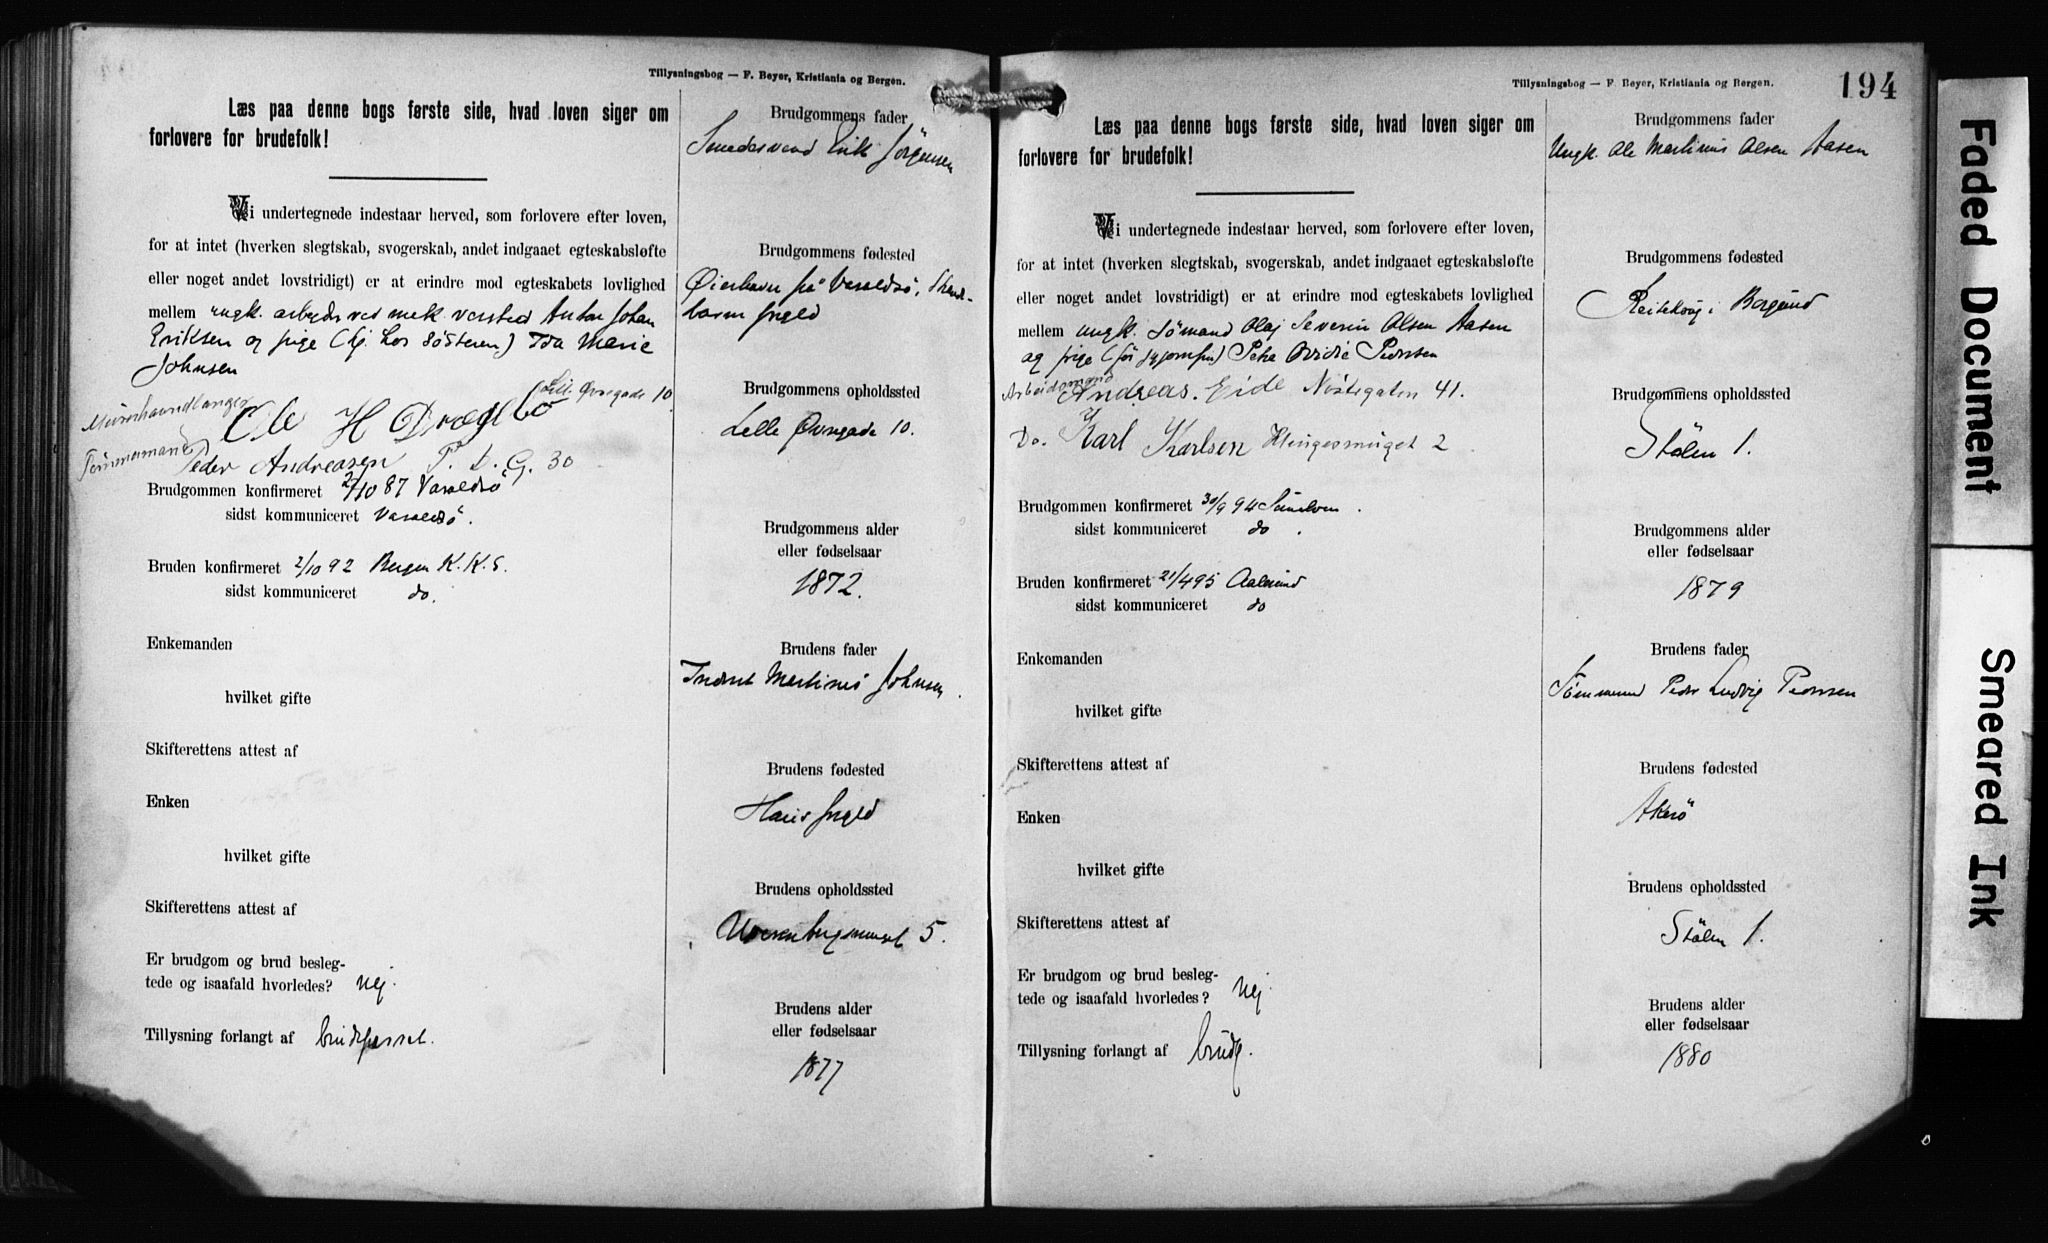 Tillysningsbog — F. Beyer, Kristiania og Bergen.
Læs paa denne bogs første side, hvad loven siger om
forlovere for brudefolk!
Vi undertegnede indestaar herved, som forlovere efter loven,
for at intet (hverken slegtskab, svogerskab, andet indgaaet egteskabsløfte
eller noget andet lovstridigt) er at erindre mod egteskabets lovlighed
mellem ungk. arbeyder ved mek. versted Anton Johan
Eriksen og pige (hj. hos Søsteren) Ida Marie
Johnsen
Ole H Øvregade 10
Tømmermand Peder Andreasen P. D. G. 30
Brudgommen konfirmeret 2/10 87 Varaldsö
sidst kommuniceret Varaldsö.
Bruden konfirmeret 2/10 92 Bergen K. K. S.
sidst kommuniceret do.
Enkemanden
hvilket gifte
Skifterettens attest af
Enken
hvilket gifte
Skifterettens attest af
Er brudgom og brud besleg-
tede og isaafald hvorledes? Nej.
Tillysning forlangt af brudeparret.
Brudgommens fader
Smedesvend Erik Jörgensen
Brudgommens fødested
på Varaldsö,
Brudgommens opholdssted
Lille Øvregade 10.
Brudgommens alder
eller fødselsaar
1872.
Brudens fader
Martinus Johnsen.
Brudens fødested
Haus prgld
Brudens opholdssted
5.
Brudens alder
eller fødselsaar
1877
Tillysningsbog — F. Beyer, Kristiania og Bergen.
194
Læs paa denne bogs første side, hvad loven siger om
forlovere for brudefolk!
Vi undertegnede indestaar herved, som forlovere efter loven,
for at intet (hverken slegtskab, svogerskab, andet indgaaet egteskabsløfte
eller noget andet lovstridigt) er at erindre mod egteskabets lovlighed
mellem ungk. sömand Olaf Severin Olsen Aasen
og pige Petra Ovidie Pedersen
Arbeidsmand Andreas. Eide Nöstegaten 41.
Do. Karl Karlsen Klingesmuget 2
Brudgommen konfirmeret 30/9 94 Sunelven.
sidst kommuniceret do.
Bruden konfirmeret 21/4 95 Aalesund
sidst kommuniceret do
Enkemanden
hvilket gifte
Skifterettens attest af
Enken
hvilket gifte
Skifterettens attest af
Er brudgom og brud besleg-
tede og isaafald hvorledes? Nej
Tillysning forlangt af brudg.
Brudgommens fader
Ungk. Ole Martinus Olsen Aasen
Brudgommens fødested
i Borgund
Brudgommens opholdssted
Stölen 1.
Brudgommens alder
eller fødselsaar
1879
Brudens fader
Tömmermand Peder Ludvig Pedersen
Brudens fødested
Akerö
Brudens opholdssted
Stölen 1.
Brudens alder
eller fødselsaar
1880
Faded Document
Smeared Ink